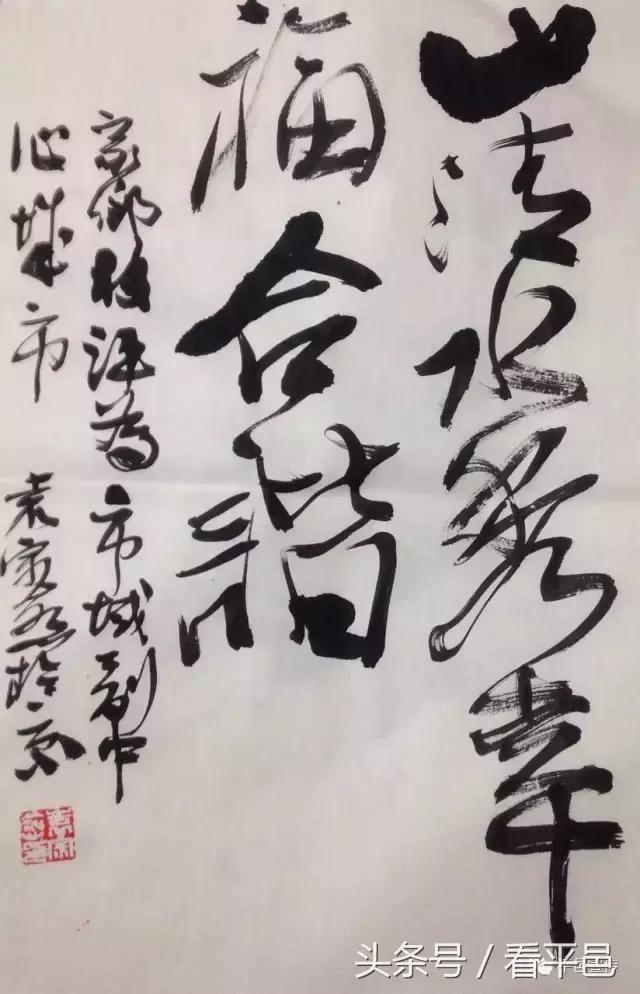 山清水秀幸
福合谐
家鄉被评為市域副中
心城市 袁家於京
头条号 / 看平邑